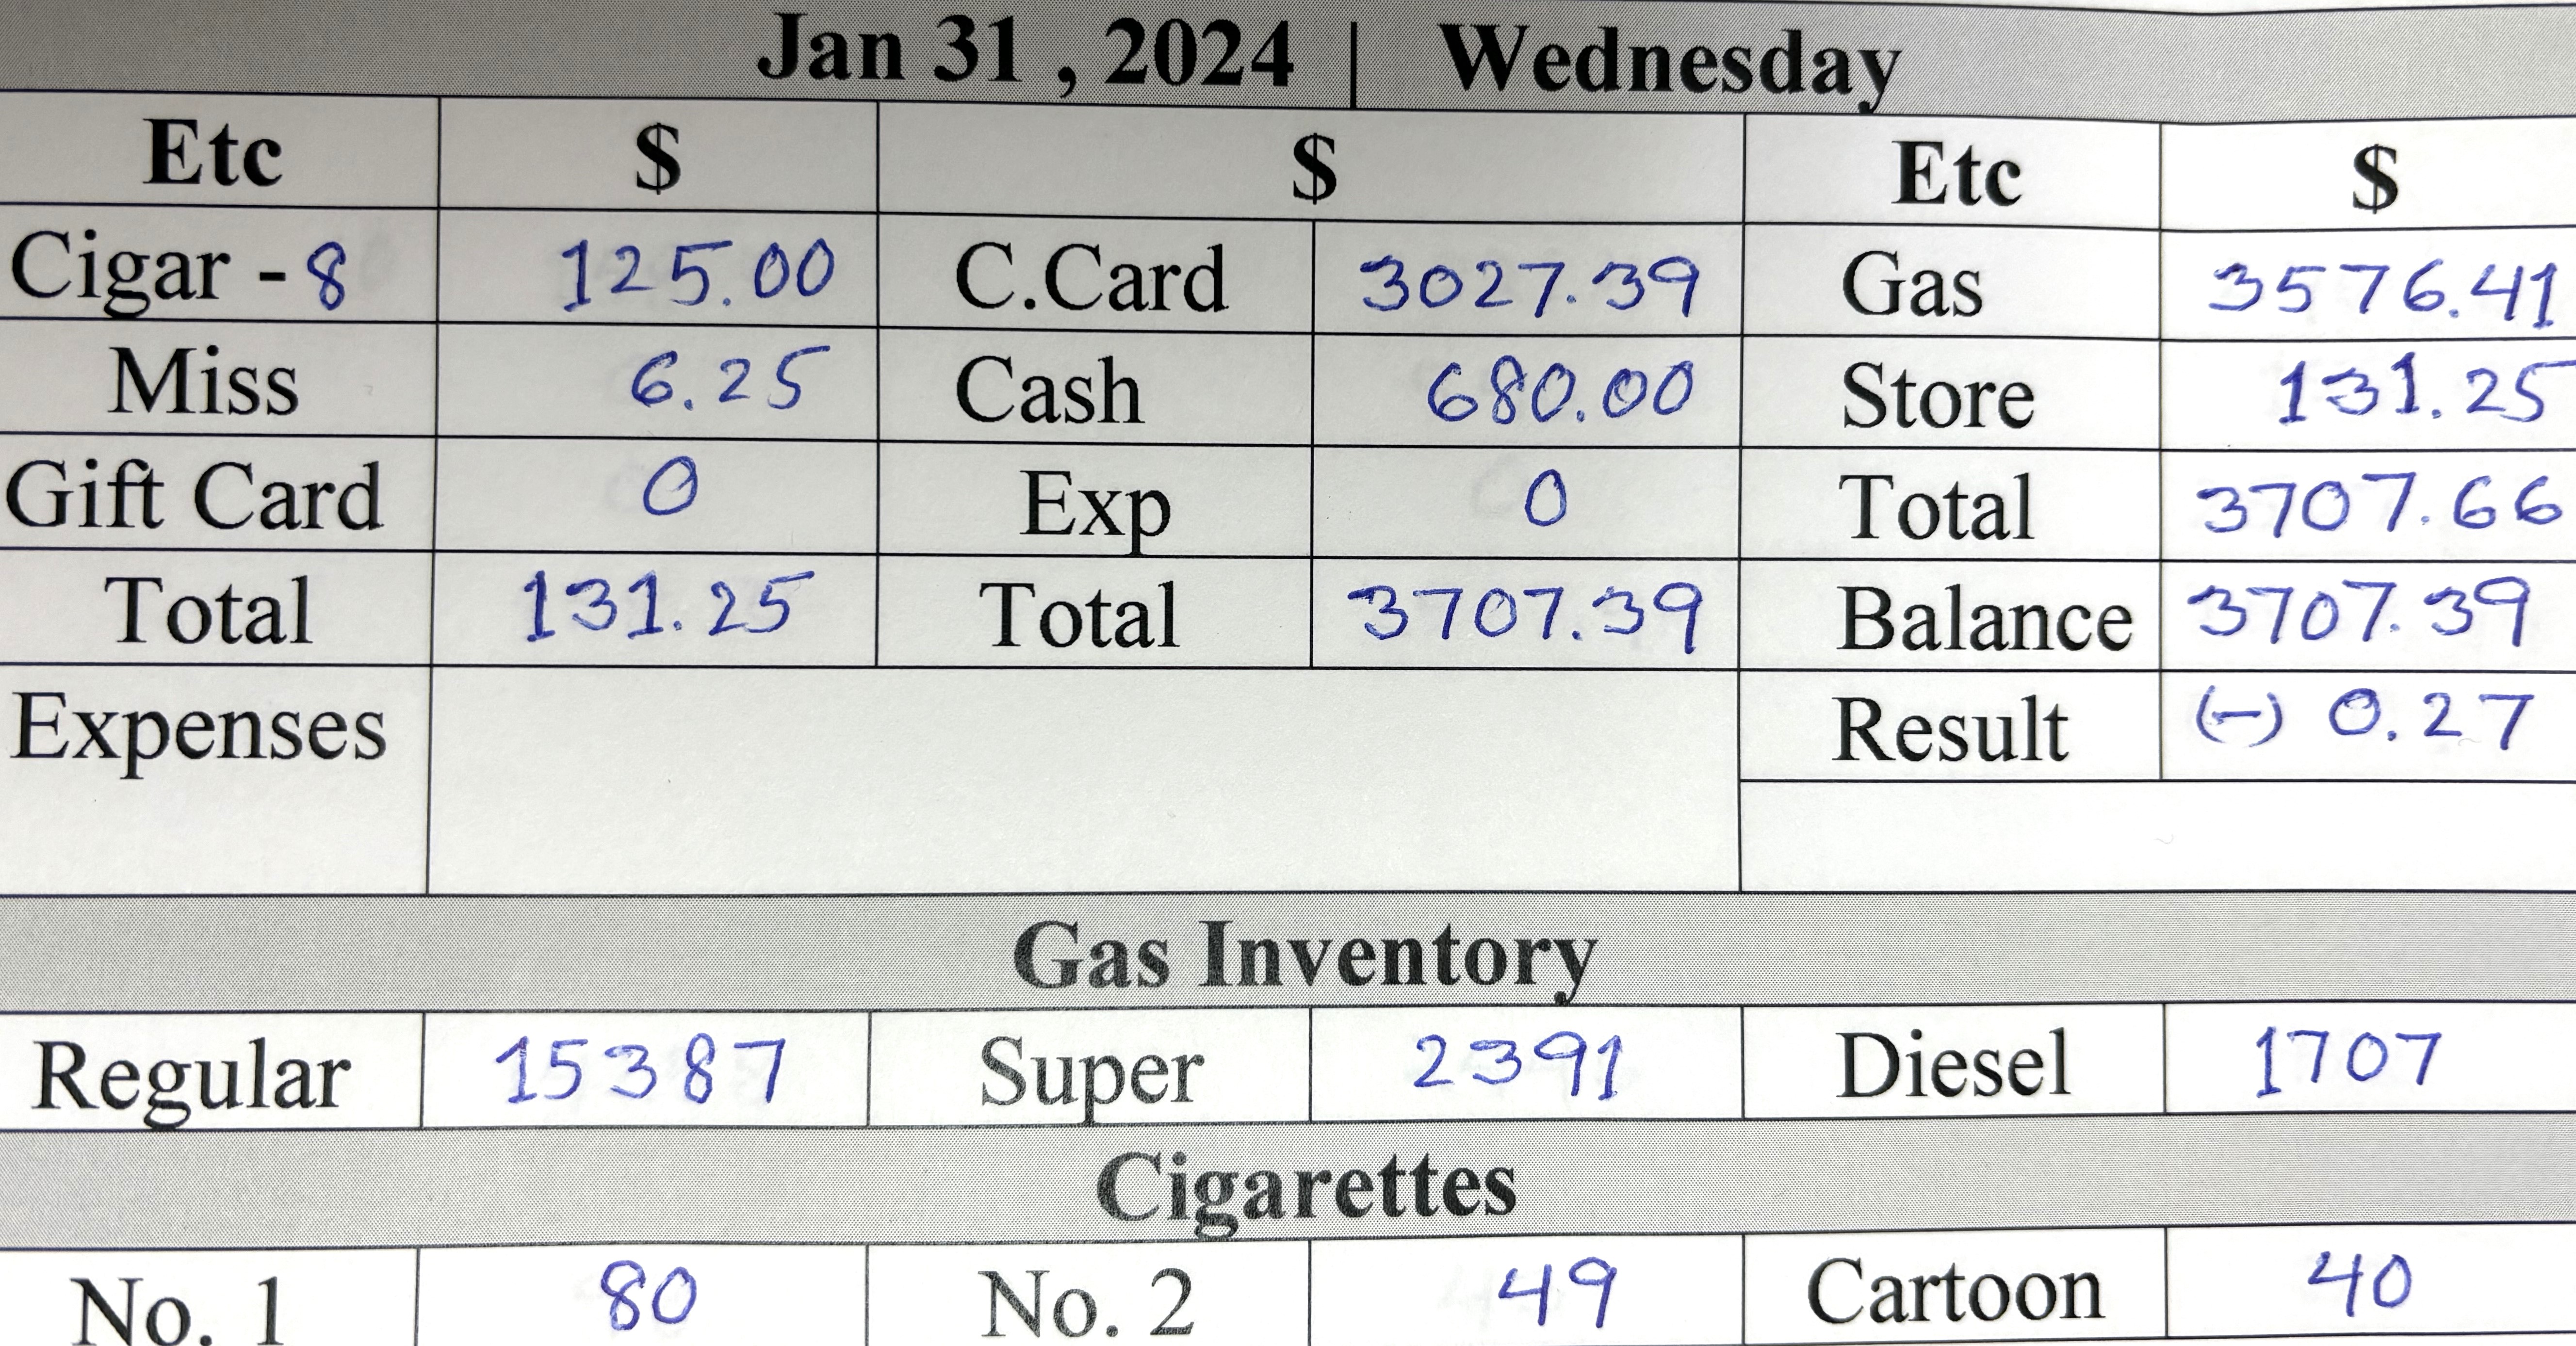 Jan 31 , 2024 | Wednesday
Etc $ $ Etc $
Cigar - 8 125.00 C.Card 3027.39 Gas 3576.41
Miss 6.25 Cash 680.00 Store 131.25
Gift Card 0 Exp 0 Total 3707.66
Total 131.25 Total 3707.39 Balance 3707.39
Expenses Result (-) 0.27
Gas Inventory
Regular 15387 Super 2391 Diesel 1707
Cigarettes
No. 1 80 No. 2 49 Cartoon 40